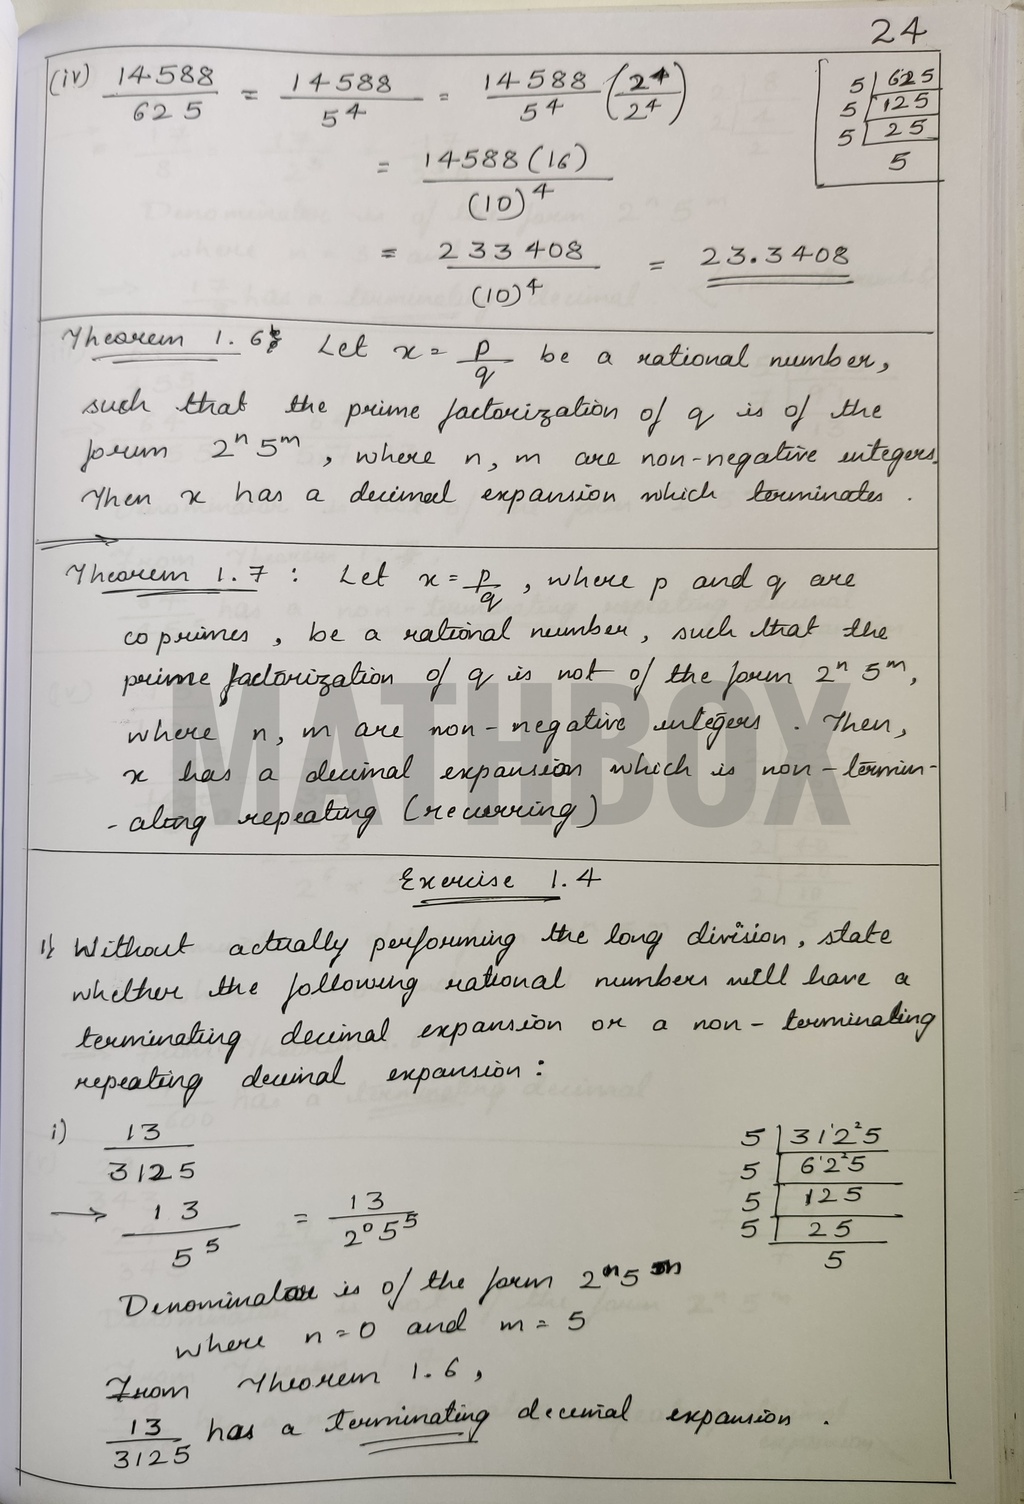 24
(iv) 14588/625 = 14588/5^4 = 14588/5^4 (2^4/2^4)
5 | 625
5 | 125
5 | 25
5
= 14588(16)/(10)^4
= 233408/(10)^4 = 23.3408
Theorem 1.6: Let x = p/q be a rational number,
such that the prime factorization of q is of the
form 2^n 5^m, where n, m are non-negative integers.
Then x has a decimal expansion which terminates.
Theorem 1.7: Let x = p/q, where p and q are
coprimes, be a rational number, such that the
prime factorization of q is not of the form 2^n 5^m,
where n, m are non-negative integers. Then,
x has a decimal expansion which is non-termin-
-ating repeating (recurring)
MATHBOX
Exercise 1.4
1) Without actually performing the long division, state
whether the following rational numbers will have a
terminating decimal expansion or a non-terminating
repeating decimal expansion:
i) 13/3125
5 | 3125
5 | 625
5 | 125
5 | 25
5
→ 13/5^5 = 13/2^0 5^5
Denominator is of the form 2^n 5^m
where n=0 and m=5
From Theorem 1.6,
13/3125 has a terminating decimal expansion.